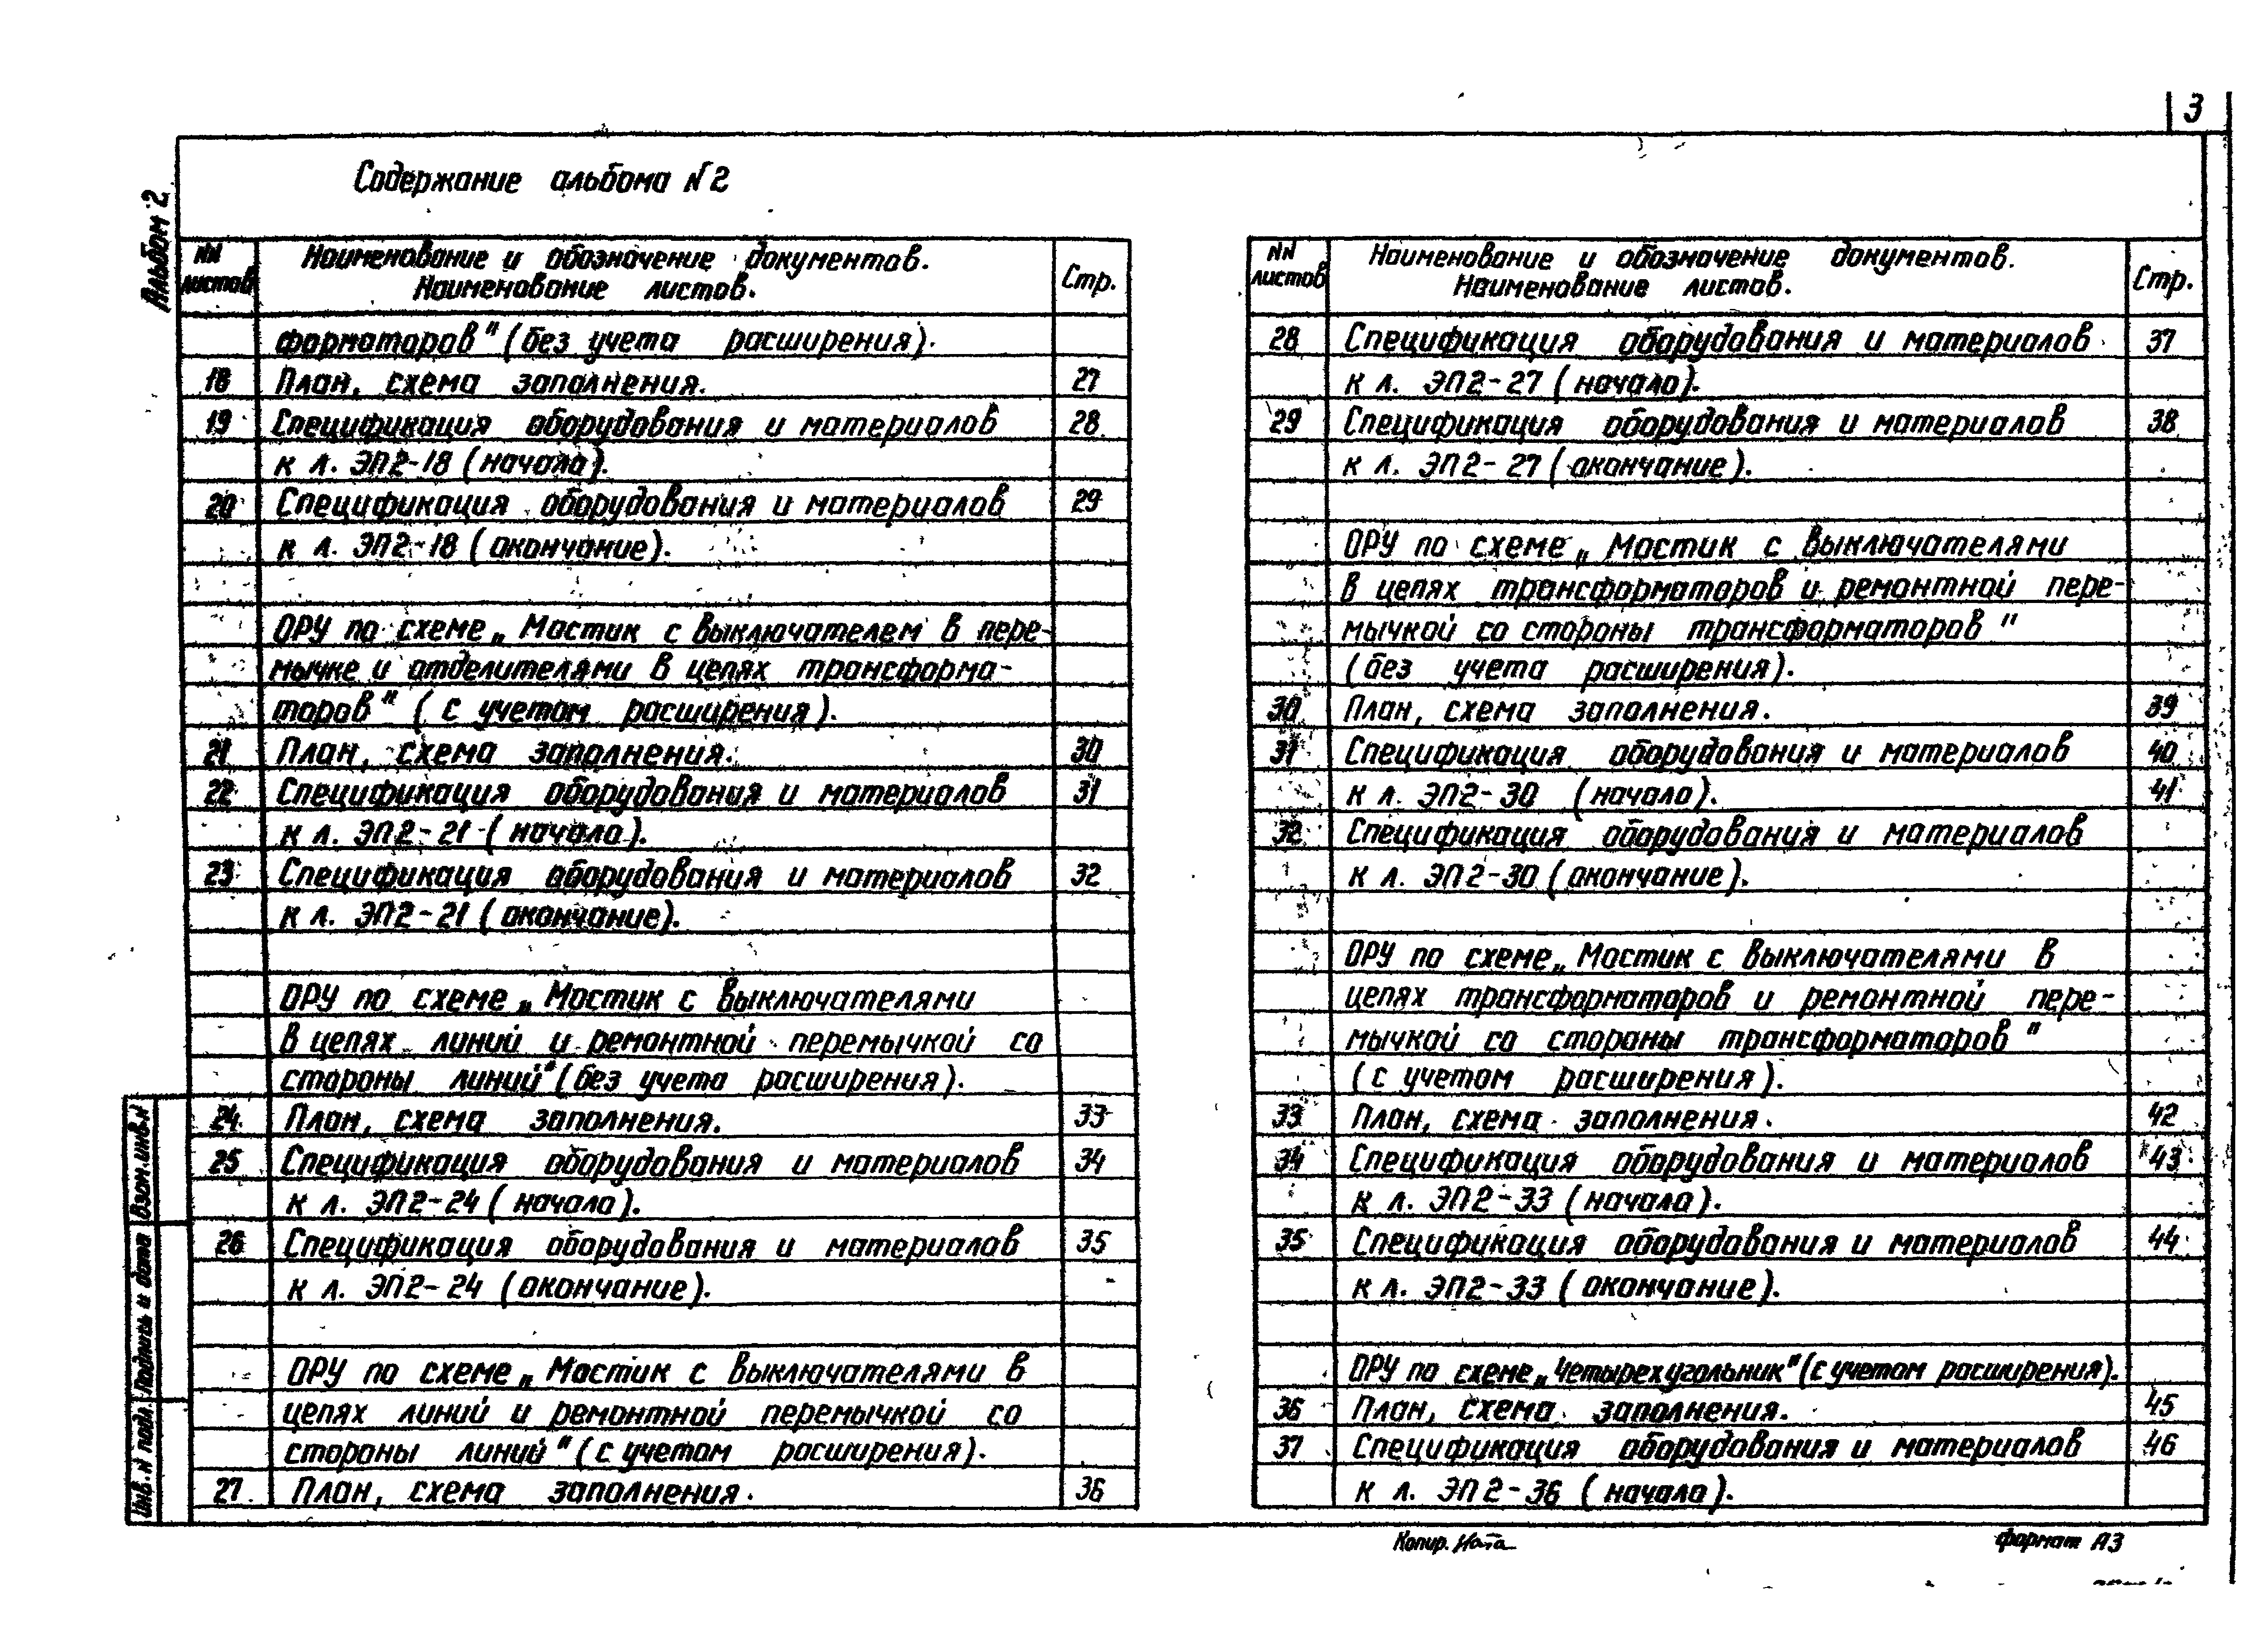 3
Альбом 2
Содержание альбома N2
NN листов
Наименование и обозначение документов.
Наименование листов.
Стр.
форматоров" (без учета расширения).
18 План, схема заполнения. 27
19 Спецификация оборудования и материалов 28
к л. ЭП2-18 (начало).
20 Спецификация оборудования и материалов 29
к л. ЭП2-18 (окончание).
ОРУ по схеме „Мостик с выключателем в пере-
мычке и отделителями в цепях трансформа-
торов" (с учетом расширения).
21 План, схема заполнения. 30
22 Спецификация оборудования и материалов 31
к л. ЭП2-21 (начало).
23 Спецификация оборудования и материалов 32
к л. ЭП2-21 (окончание).
ОРУ по схеме „Мостик с выключателями
в цепях линий и ремонтной перемычкой со
стороны линий" (без учета расширения).
24 План, схема заполнения. 33
25 Спецификация оборудования и материалов 34
к л. ЭП2-24 (начало).
26 Спецификация оборудования и материалов 35
к л. ЭП2-24 (окончание).
ОРУ по схеме „Мостик с выключателями в
цепях линий и ремонтной перемычкой со
стороны линий" (с учетом расширения).
27 План, схема заполнения. 36
NN листов
Наименование и обозначение документов.
Наименование листов.
Стр.
28 Спецификация оборудования и материалов 37
к л. ЭП2-27 (начало).
29 Спецификация оборудования и материалов 38
к л. ЭП2-27 (окончание).
ОРУ по схеме „Мостик с выключателями
в цепях трансформаторов и ремонтной пере-
мычкой со стороны трансформаторов"
(без учета расширения).
30 План, схема заполнения. 39
31 Спецификация оборудования и материалов 40
к л. ЭП2-30 (начало). 41
32 Спецификация оборудования и материалов
к л. ЭП2-30 (окончание).
ОРУ по схеме „Мостик с выключателями в
цепях трансформаторов и ремонтной пере-
мычкой со стороны трансформаторов"
(с учетом расширения).
33 План, схема заполнения. 42
34 Спецификация оборудования и материалов 43
к л. ЭП2-33 (начало).
35 Спецификация оборудования и материалов 44
к л. ЭП2-33 (окончание).
ОРУ по схеме „Четырехугольник" (с учетом расширения).
36 План, схема заполнения. 45
37 Спецификация оборудования и материалов 46
к л. ЭП2-36 (начало).
Взам.инв.N
Подпись и дата
Инв.N подл.
Копир. Ната
формат А3